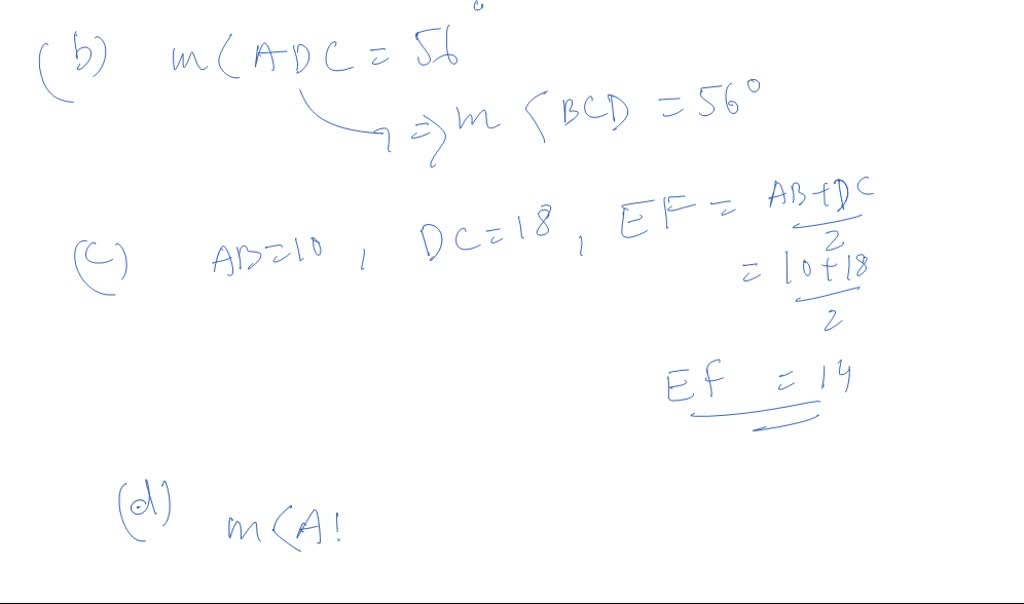 (b) m<ADC = 56°
=> m <BCD = 56°
(c) AB=10 , DC=18 , EF = AB+DC
2
= 10+18
2
EF = 14
(d) m<A!